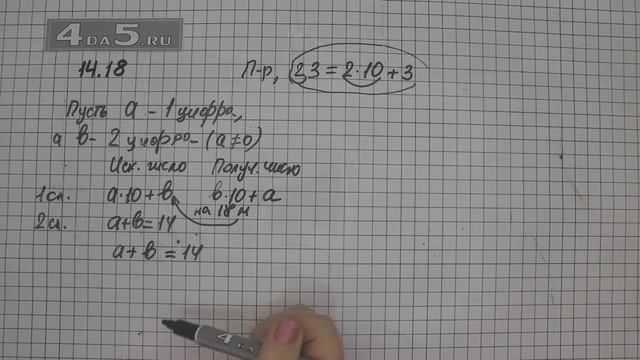 4DA5.RU
14.18 П-р, 23 = 2·10 + 3
Пусть a – 1 цифра,
а в – 2 цифра – (a ≠ 0)
Исх. число Получ. число
1сл. a·10 + в в·10 + a
на 18 м
2сл. a + в = 14
a + в = 14
4DA